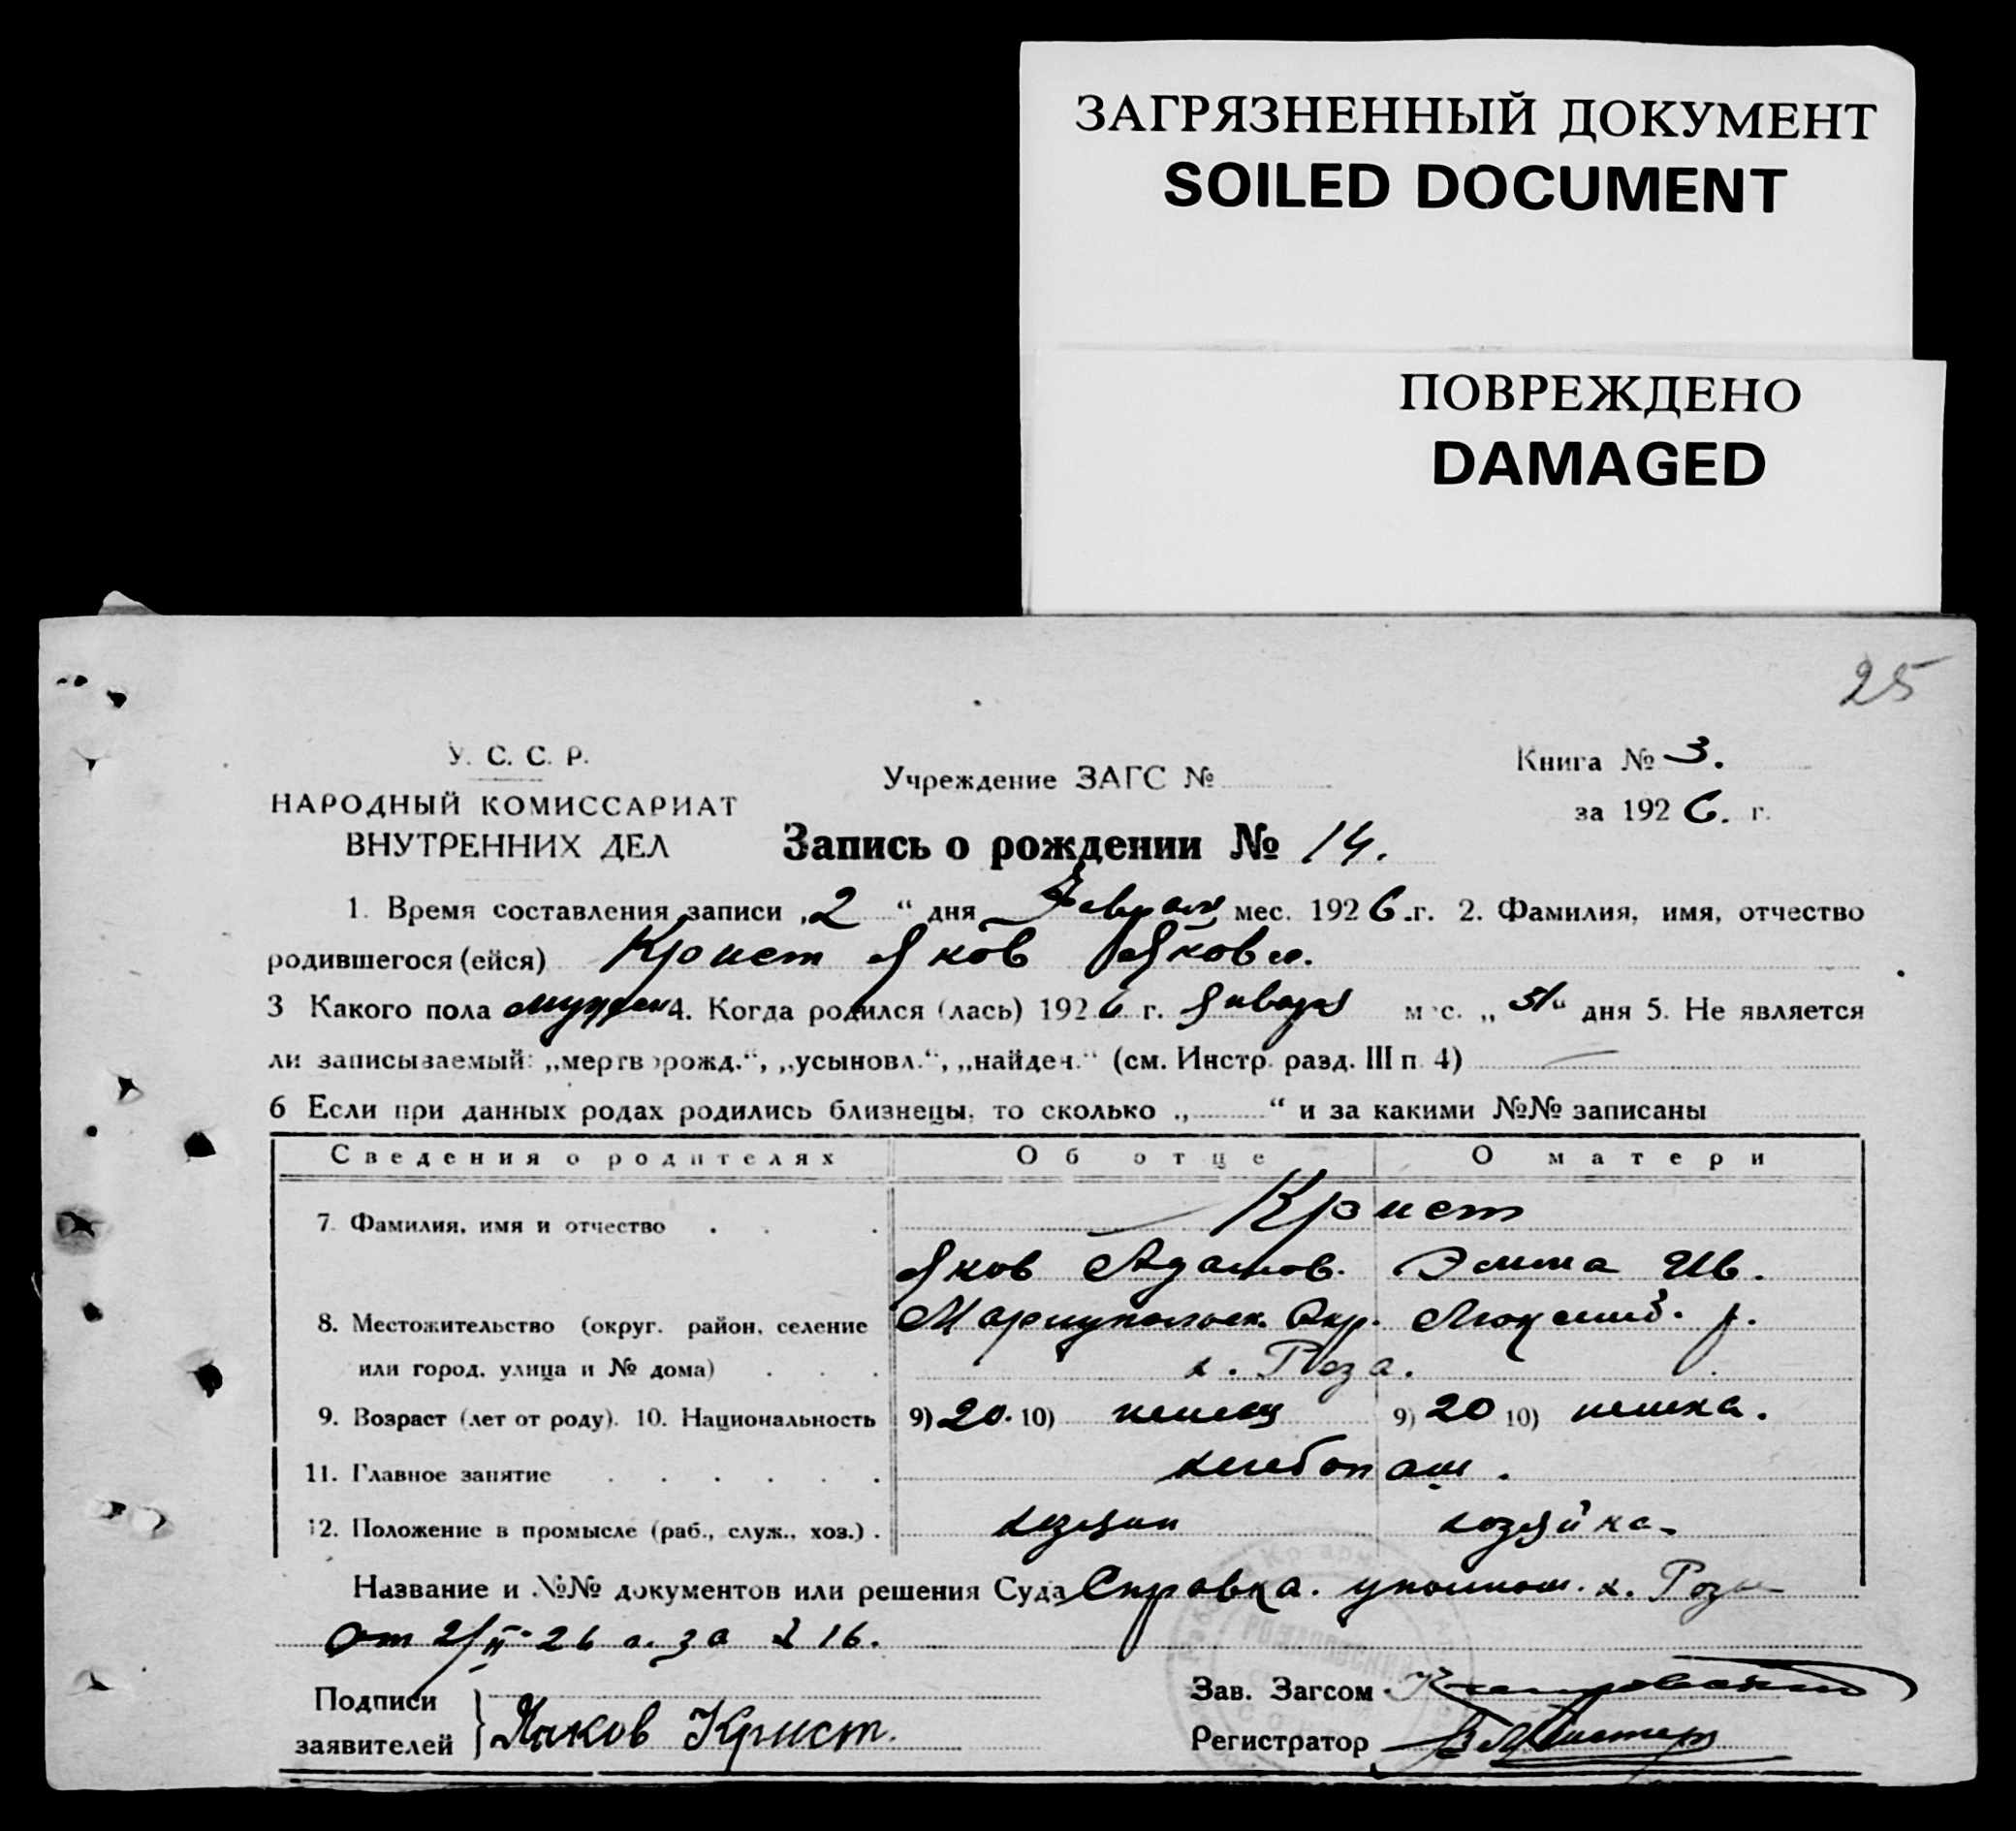 ЗАГРЯЗНЕННЫЙ ДОКУМЕНТ
SOILED DOCUMENT
ПОВРЕЖДЕНО
DAMAGED
25
У. С. С. Р.
НАРОДНЫЙ КОМИССАРИАТ
ВНУТРЕННИХ ДЕЛ
Учреждение ЗАГС №
Книга № 3.
за 1926. г.
Запись о рождении № 14.
1. Время составления записи „2“ дня Февраля мес. 1926.г. 2. Фамилия, имя, отчество
родившегося (ейся) Крист Яков Яковл.
3 Какого пола мужск 4. Когда родился (лась) 1926 г. Января мес. „31“ дня 5. Не является
ли записываемый: „мертворожд.“, „усыновл.“, „найден.“ (см. Инстр. разд. III п. 4)
6 Если при данных родах родились близнецы, то сколько „ “ и за какими №№ записаны
Сведения о родителях Об отце О матери
7. Фамилия, имя и отчество Крист
Яков Адамов. Эмма Ив.
8. Местожительство (округ. район, селение Мариупольск. Окр. р.
или город, улица и № дома) х. Роза.
9. Возраст (лет от роду). 10. Национальность 9) 20. 10) немец 9) 20 10) немка.
11. Главное занятие хлебопаш.
12. Положение в промысле (раб., служ., хоз.) хозяин хозяйка
Название и №№ документов или решения Суда Справка. уполном. х. Розы
от 2/II-26 г. за № 16.
Подписи
заявителей } Яков Крист.
Зав. Загсом
Регистратор